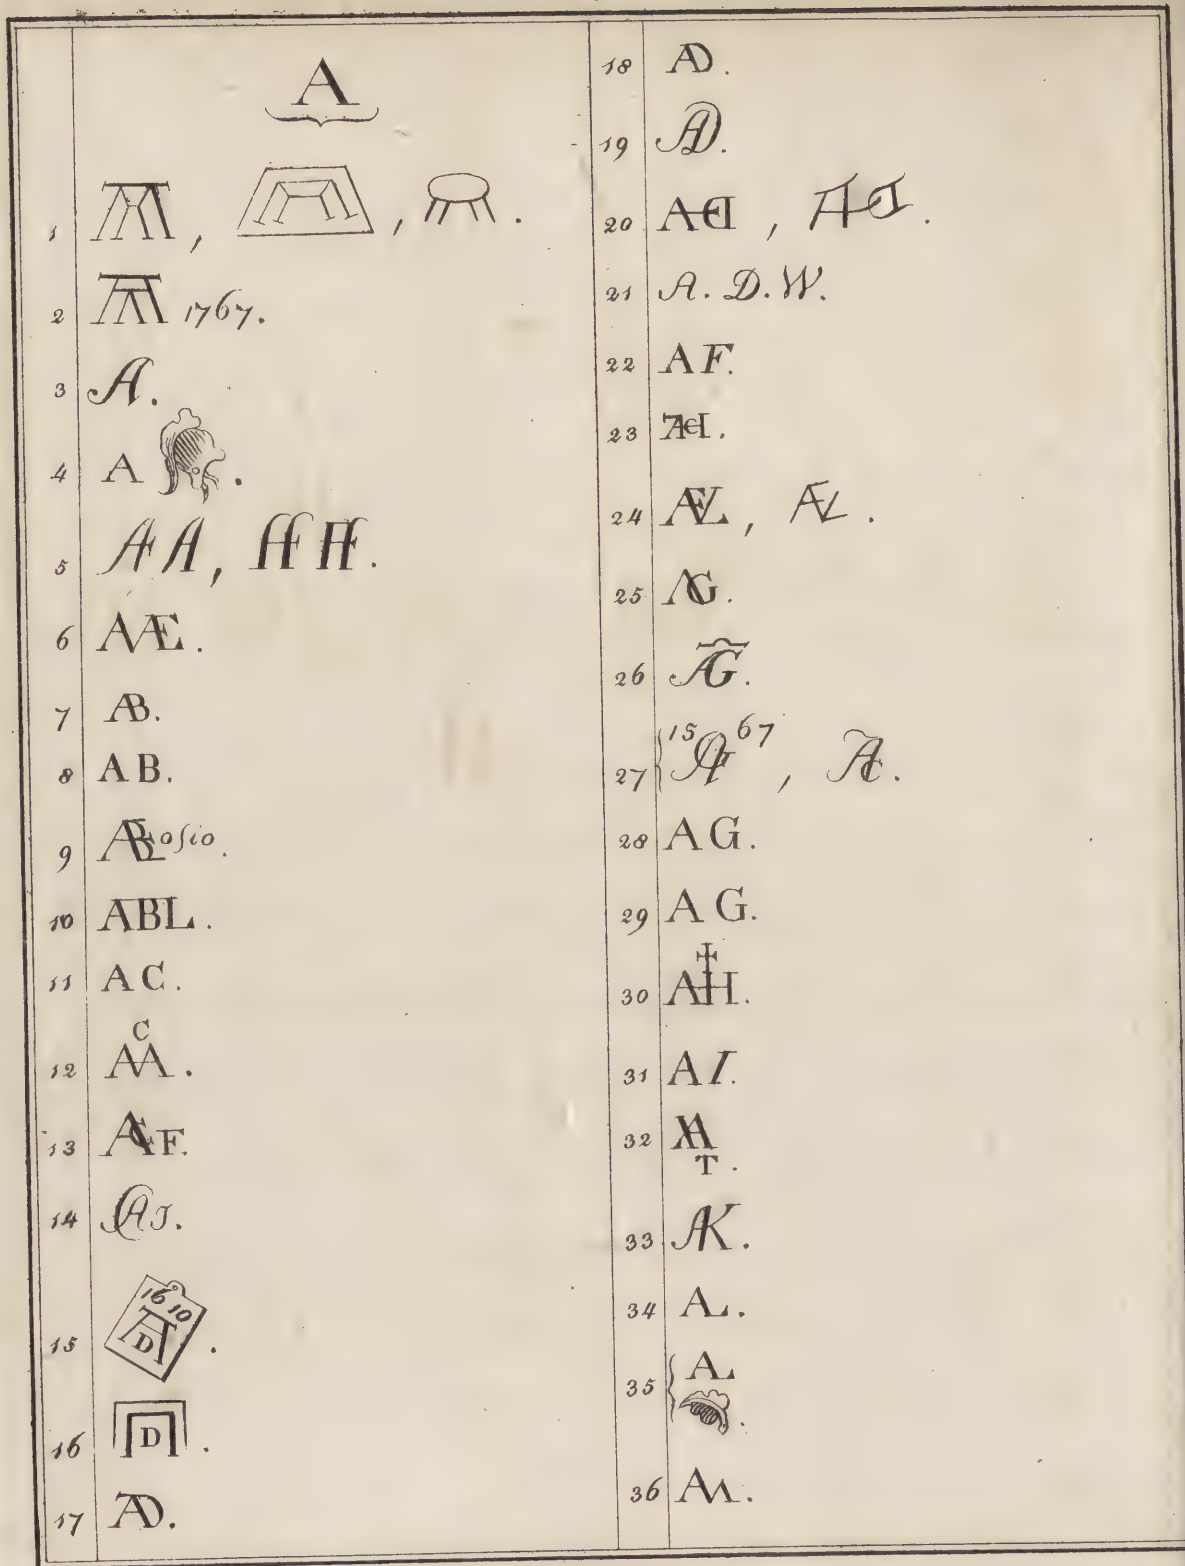 A
1 AA, A, .
2 AA 1767.
3 A.
4 A .
5 AA, .
6 AAE.
7 AB.
8 AB.
9 ABLosio.
10 ABL.
11 AC.
12 C AA.
13 ACF.
14 CAJ.
15 1610 AD.
16 D.
17 AD.
18 AD.
19 AD.
20 AD, .
21 A. D. W.
22 AF.
23 .
24 AEL, AEL.
25 AG.
26 AG.
27 1567, .
28 AG.
29 AG.
30 AH.
31 AI.
32 T.
33 AK.
34 AL.
35 AL.
36 AM.